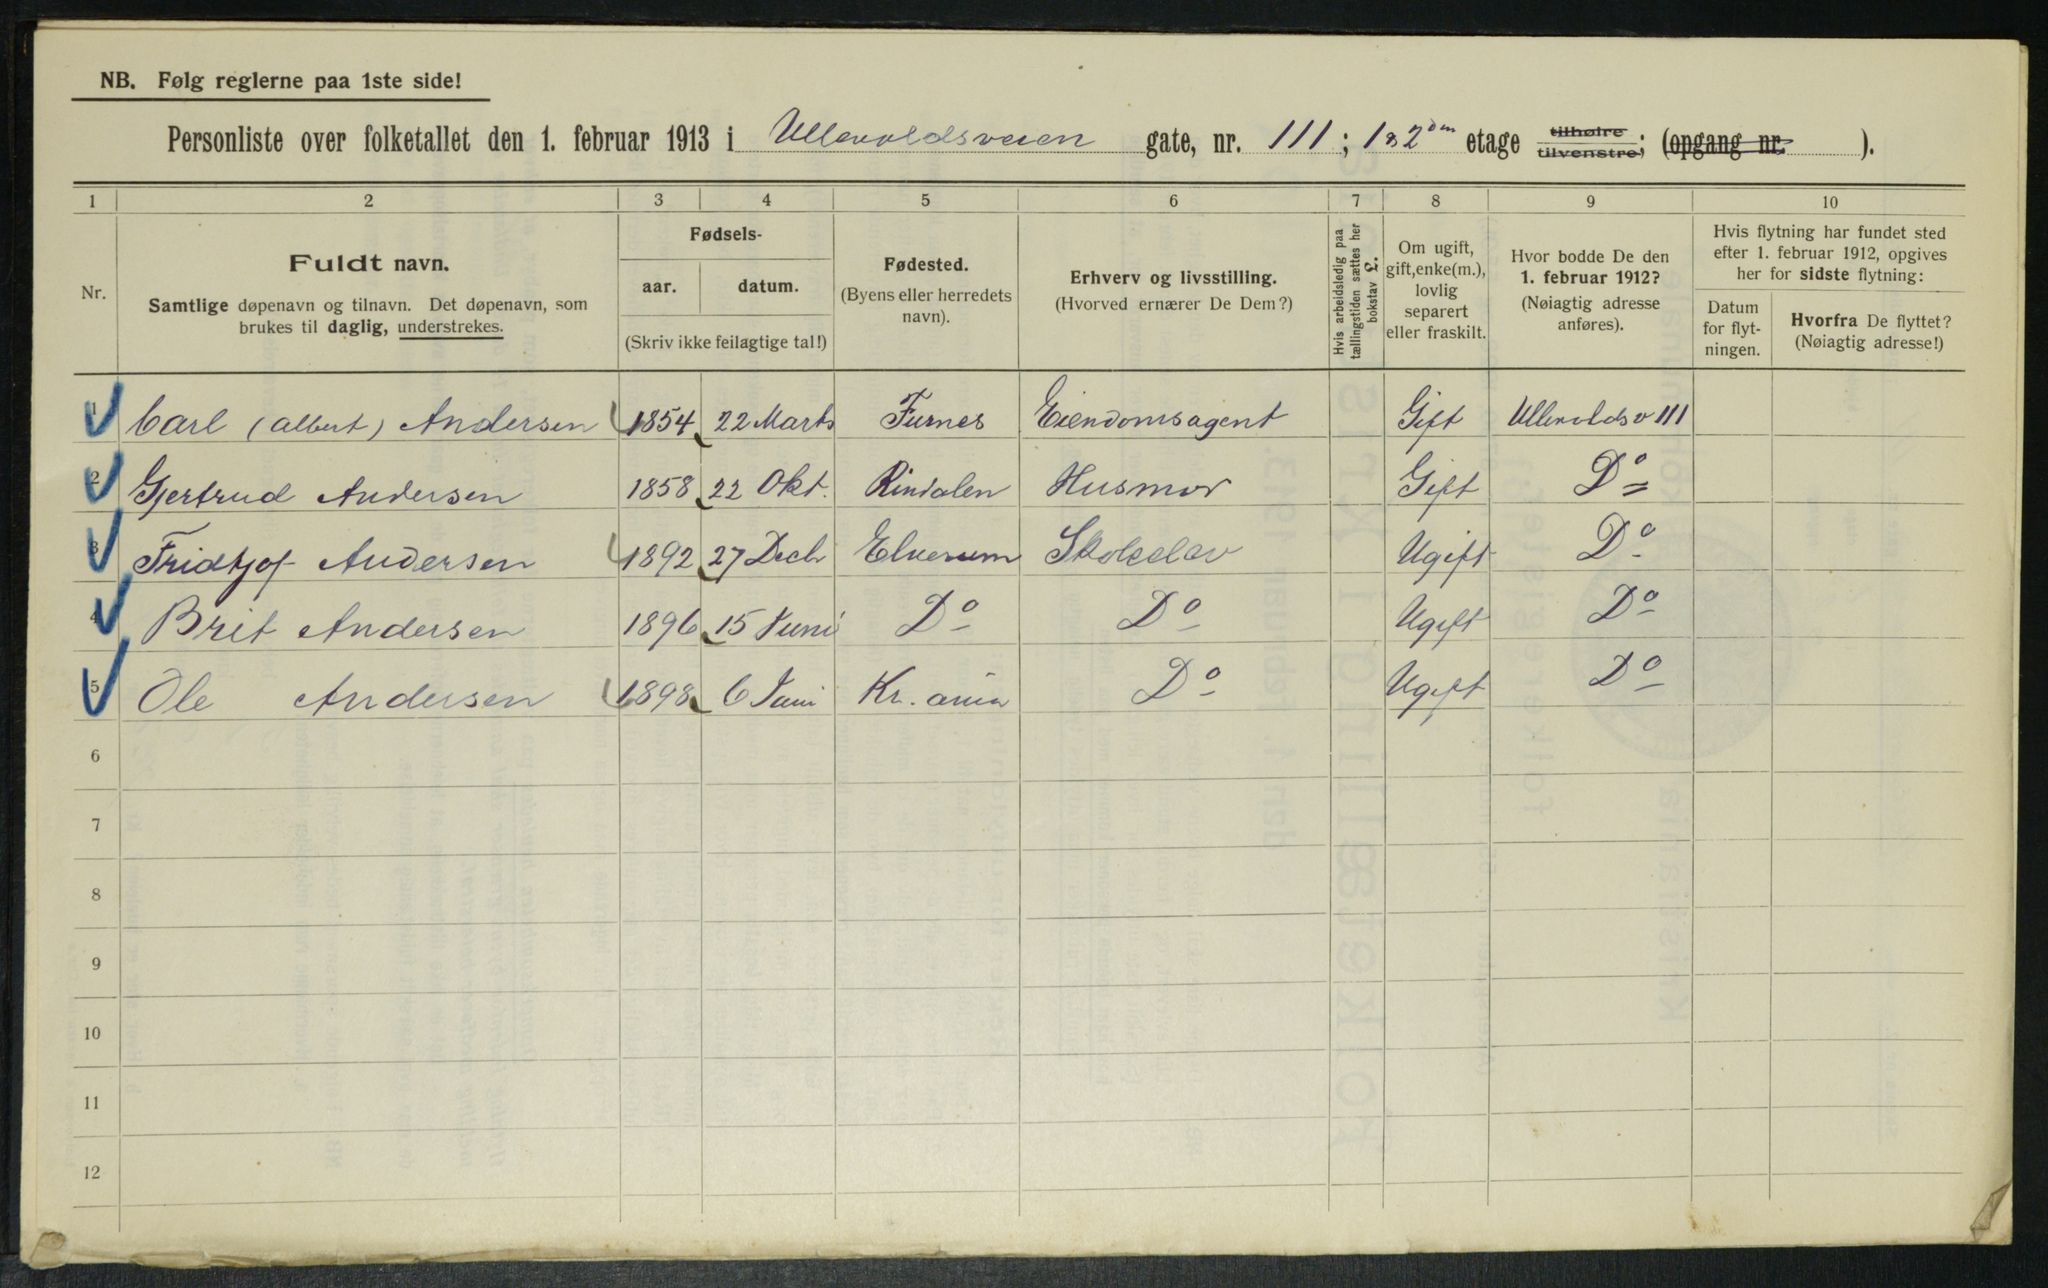 NB. Følg reglerne paa 1ste side!
Personliste over folketallet den 1. februar 1913 i Ullevoldsveien gate, nr. 111; 1 & 2den etage tilhøire tilvenstre; (opgang nr. ).
1 2 3 4 5 6 7 8 9 10
Nr.
Fuldt navn.
Samtlige døpenavn og tilnavn. Det døpenavn, som
brukes til daglig, understrekes.
Fødsels-
aar. datum.
(Skriv ikke feilagtige tal!)
Fødested.
(Byens eller herredets
navn).
Erhverv og livsstilling.
(Hvorved ernærer De Dem?)
Hvis arbeidsledig paa
tællingstiden sættes her
bokstav L.
Om ugift,
gift, enke(m.),
lovlig
separert
eller fraskilt.
Hvor bodde De den
1. februar 1912?
(Nøiagtig adresse
anføres).
Hvis flytning har fundet sted
efter 1. februar 1912, opgives
her for sidste flytning:
Datum
for flyt-
ningen.
Hvorfra De flyttet?
(Nøiagtig adresse!)
1 Carl (Albert) Andersen 1854 22 Marts Furnes Eiendomsagent Gift Ullevoldsv 111
2 Gjertrud Andersen 1858 22 Okt. Rindalen Husmor Gift Do
3 Fridtjof Andersen 1892 27 Decbr Elverum Skoleelev Ugift Do
4 Brit Andersen 1896 15 Juni Do Do Ugift Do
5 Ole Andersen 1898 6 Juni Kr. ania Do Ugift Do
6
7
8
9
10
11
12